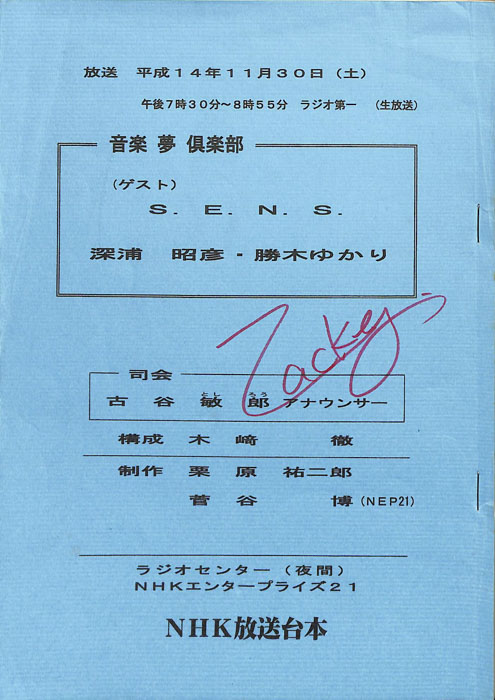 放送 平成14年11月30日（土）
午後7時30分～8時55分 ラジオ第一 （生放送）
音楽 夢 倶楽部
（ゲスト）
S. E. N. S.
深浦 昭彦・勝木ゆかり
Zackey
司会
古谷 敏郎 アナウンサー
とし ろう
構成 木﨑 徹
制作 栗原 祐二郎
菅谷 博（NEP21）
ラジオセンター（夜間）
NHKエンタープライズ21
NHK放送台本